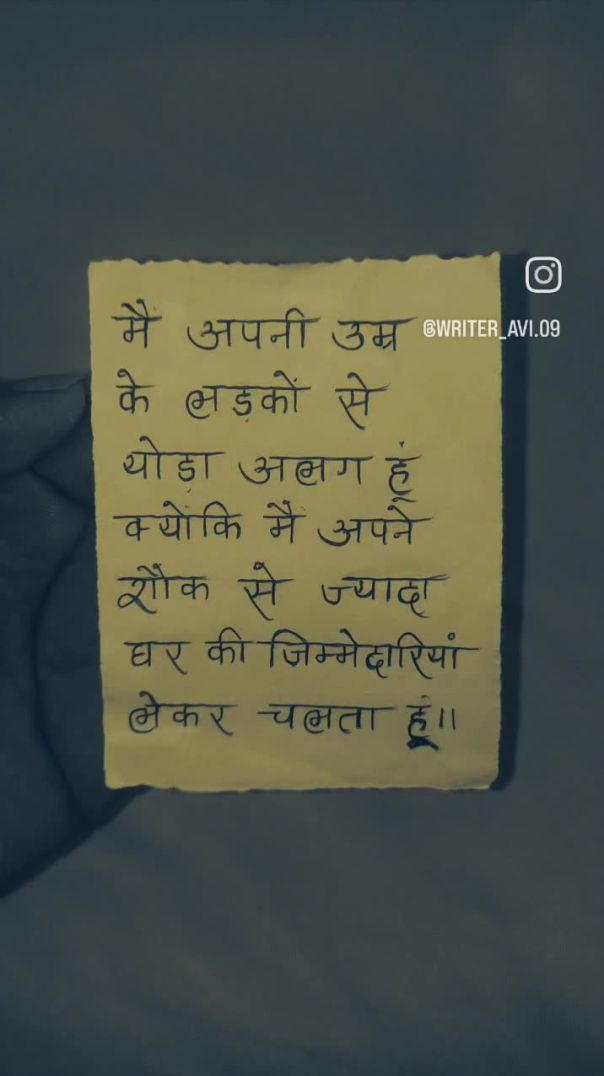 मैं अपनी उम्र
@WRITER_AVI.09
के लड़कों से
थोड़ा अलग हूं
क्योंकि मैं अपने
शौक से ज्यादा
घर की जिम्मेदारियां
लेकर चलता हूं॥